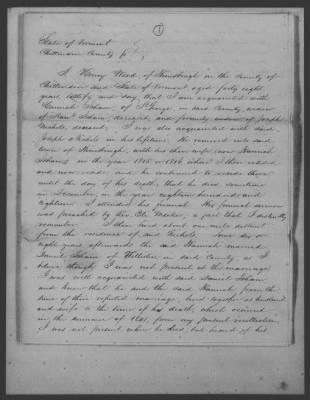 1
State of Vermont
Chittenden County
I Henry Weed of Hinesburgh in the County of
Chittenden and State of Vermont aged forty eight
years, testify and say, that I am acquainted with
Hannah Isham, of St George, in said County, widow
of Daniel Isham, deceased, and formerly widow of Joseph
Nichols, deceased. I was also acquainted with said
Joseph Nichols in his lifetime. He removed into said
town of Hinesburgh, with his then wife, now Hannah
Isham, in the year 1805 or 1806, where I then resided
and now reside, and he continued to reside there
until the day of his death; that he died sometime
in December, in the year eighteen hundred and
eighteen. I attended his funeral. His funeral sermon
was preached by this, a fact that I distinctly
remember. I then lived about one mile distant
from the residence of said Nichols. Some six or
eight years afterwards the said Hannah married
Daniel Isham of Williston in said County, as I
believe, though I was not present at the marriage.
I was well acquainted with said Daniel Isham
and know that he and the said Hannah, from the
time of their reputed marriage, lived together as husband
and wife to the time of his death, which occurred
in the summer of, from my present recollection.
I was not present when he died, but heard of his